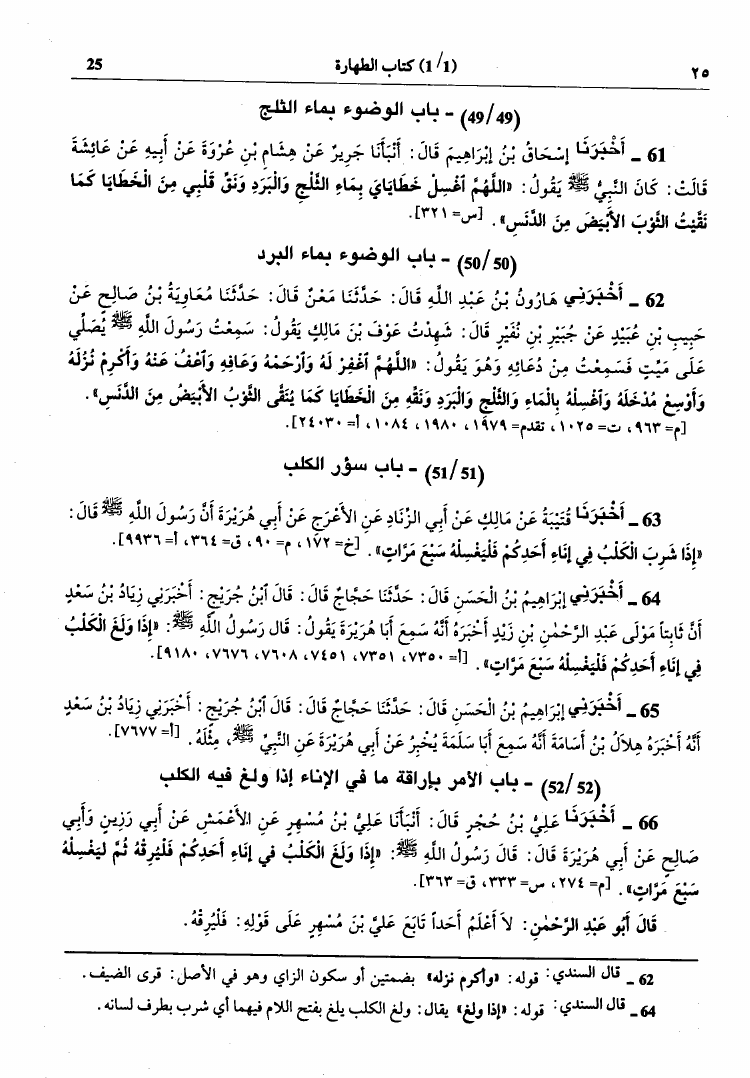 ٢٥ (1/1) كتاب الطهارة 25
(49/49) - باب الوضوء بماء الثلج
61 ـ أَخْبَرَنَا إِسْحَاقُ بْنُ إِبْرَاهِيمَ قَالَ: أَنْبَأَنَا جَرِيرٌ عَنْ هِشَامِ بْنِ عُرْوَةَ عَنْ أَبِيهِ عَنْ عَائِشَةَ
قَالَتْ: كَانَ النَّبِيُّ ﷺ يَقُولُ: «اللَّهُمَّ ٱغْسِلْ خَطَايَايَ بِمَاءِ الثَّلْجِ وَالْبَرَدِ وَنَقِّ قَلْبِي مِنَ الْخَطَايَا كَمَا
نَقَّيْتَ الثَّوْبَ الأَبْيَضَ مِنَ الدَّنَسِ». [س= ٣٢١].
(50/50) - باب الوضوء بماء البرد
62 ـ أَخْبَرَنِي هَارُونُ بْنُ عَبْدِ اللَّهِ قَالَ: حَدَّثَنَا مَعْنٌ قَالَ: حَدَّثَنَا مُعَاوِيَةُ بْنُ صَالِحٍ عَنْ
حَبِيبِ بْنِ عُبَيْدٍ عَنْ جُبَيْرِ بْنِ نُفَيْرٍ قَالَ: شَهِدْتُ عَوْفَ بْنَ مَالِكٍ يَقُولُ: سَمِعْتُ رَسُولَ اللَّهِ ﷺ يُصَلِّي
عَلَى مَيِّتٍ فَسَمِعْتُ مِنْ دُعَائِهِ وَهُوَ يَقُولُ: «اللَّهُمَّ ٱغْفِرْ لَهُ وَٱرْحَمْهُ وَعَافِهِ وَٱعْفُ عَنْهُ وَأَكْرِمْ نُزُلَهُ
وَأَوْسِعْ مُدْخَلَهُ وَٱغْسِلْهُ بِالْمَاءِ وَالثَّلْجِ وَالْبَرَدِ وَنَقِّهِ مِنَ الْخَطَايَا كَمَا يُنَقَّى الثَّوْبُ الأَبْيَضُ مِنَ الدَّنَسِ».
[م= ٩٦٣، ت= ١٠٢٥، تقدم= ١٩٧٩، ١٩٨٠، ١٠٨٤، أ= ٢٤٠٣٠].
(51/51) - باب سؤر الكلب
63 ـ أَخْبَرَنَا قُتَيْبَةُ عَنْ مَالِكٍ عَنْ أَبِي الزِّنَادِ عَنِ الأَعْرَجِ عَنْ أَبِي هُرَيْرَةَ أَنَّ رَسُولَ اللَّهِ ﷺ قَالَ:
«إِذَا شَرِبَ الْكَلْبُ فِي إِنَاءِ أَحَدِكُمْ فَلْيَغْسِلْهُ سَبْعَ مَرَّاتٍ». [خ= ١٧٢، م= ٩٠، ق= ٣٦٤، أ= ٩٩٣٦].
64 ـ أَخْبَرَنِي إِبْرَاهِيمُ بْنُ الْحَسَنِ قَالَ: حَدَّثَنَا حَجَّاجٌ قَالَ: قَالَ ٱبْنُ جُرَيْجٍ: أَخْبَرَنِي زِيَادُ بْنُ سَعْدٍ
أَنَّ ثَابِتاً مَوْلَى عَبْدِ الرَّحْمٰنِ بْنِ زَيْدٍ أَخْبَرَهُ أَنَّهُ سَمِعَ أَبَا هُرَيْرَةَ يَقُولُ: قَالَ رَسُولُ اللَّهِ ﷺ: «إِذَا وَلَغَ الْكَلْبُ
فِي إِنَاءِ أَحَدِكُمْ فَلْيَغْسِلْهُ سَبْعَ مَرَّاتٍ». [أ= ٧٣٥٠، ٧٣٥١، ٧٤٥١، ٧٦٠٨، ٧٦٧٦، ٩١٨٠].
65 ـ أَخْبَرَنِي إِبْرَاهِيمُ بْنُ الْحَسَنِ قَالَ: حَدَّثَنَا حَجَّاجٌ قَالَ: قَالَ ٱبْنُ جُرَيْجٍ: أَخْبَرَنِي زِيَادُ بْنُ سَعْدٍ
أَنَّهُ أَخْبَرَهُ هِلاَلُ بْنُ أُسَامَةَ أَنَّهُ سَمِعَ أَبَا سَلَمَةَ يُخْبِرُ عَنْ أَبِي هُرَيْرَةَ عَنِ النَّبِيِّ ﷺ، مِثْلَهُ. [أ= ٧٦٧٧].
(52/52) - باب الأمر بإراقة ما في الإناء إذا ولغ فيه الكلب
66 ـ أَخْبَرَنَا عَلِيُّ بْنُ حُجْرٍ قَالَ: أَنْبَأَنَا عَلِيُّ بْنُ مُسْهِرٍ عَنِ الأَعْمَشِ عَنْ أَبِي رَزِينٍ وَأَبِي
صَالِحٍ عَنْ أَبِي هُرَيْرَةَ قَالَ: قَالَ رَسُولُ اللَّهِ ﷺ: «إِذَا وَلَغَ الْكَلْبُ فِي إِنَاءِ أَحَدِكُمْ فَلْيُرِقْهُ ثُمَّ لِيَغْسِلْهُ
سَبْعَ مَرَّاتٍ». [م= ٢٧٤، س= ٣٣٣، ق= ٣٦٣].
قَالَ أَبُو عَبْدِ الرَّحْمٰنِ: لاَ أَعْلَمُ أَحَداً تَابَعَ عَلِيَّ بْنَ مُسْهِرٍ عَلَى قَوْلِهِ: فَلْيُرِقْهُ.
62 ـ قال السندي: قوله: «وأكرم نزله» بضمتين أو سكون الزاي وهو في الأصل: قرى الضيف.
64 ـ قال السندي: قوله: «إذا ولغ» يقال: ولغ الكلب يلغ بفتح اللام فيهما أي شرب بطرف لسانه.